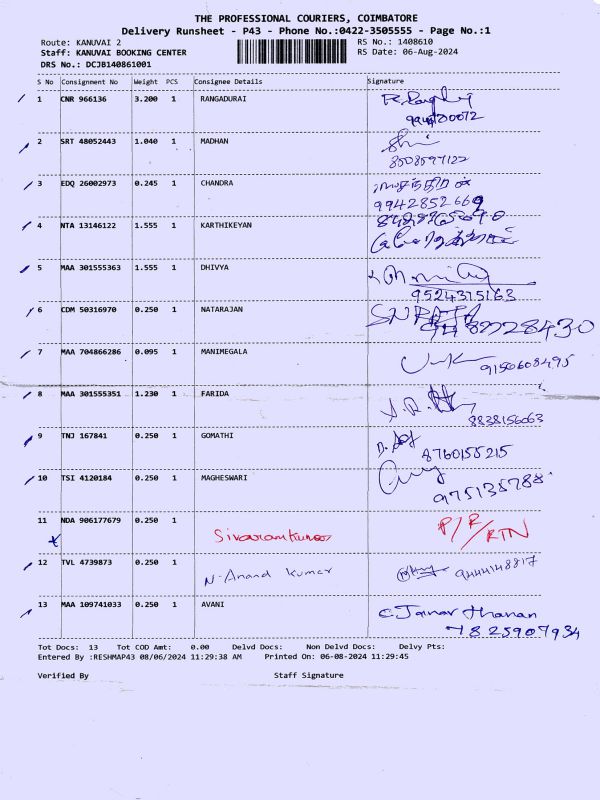 THE PROFESSIONAL COURIERS, COIMBATORE
Delivery Runsheet - P43 - Phone No.:0422-3505555 - Page No.:1
Route: KANUVAI 2
RS No.: 1408610
Staff: KANUVAI BOOKING CENTER
RS Date: 06-Aug-2024
DRS No.: DCJB140861001
S No Consignment No Weight PCS Consignee Details Signature
1 CNR 966136 3.200 1 RANGADURAI
2 SRT 48052443 1.040 1 MADHAN
8508597122
3 EDQ 26002973 0.245 1 CHANDRA
9942852669
4 NTA 13146122 1.555 1 KARTHIKEYAN
5 MAA 301555363 1.555 1 DHIVYA
9524375163
6 CDM 50316970 0.250 1 NATARAJAN
7 MAA 704866286 0.095 1 MANIMEGALA
9150608495
8 MAA 301555351 1.230 1 FARIDA
8838156063
9 TNJ 167841 0.250 1 GOMATHI
8760155215
10 TSI 4120184 0.250 1 MAGHESWARI
975135788
11 NDA 906177679 0.250 1 Sivaramkumar P/R/RTN
12 TVL 4739873 0.250 1 N. Anand Kumar 9444148817
13 MAA 109741033 0.250 1 AVANI C. Janarthanan
7825907934
Tot Docs: 13 Tot COD Amt: 0.00 Delvd Docs: Non Delvd Docs: Delvy Pts:
Entered By :RESHMAP43 08/06/2024 11:29:38 AM Printed On: 06-08-2024 11:29:45
Verified By Staff Signature